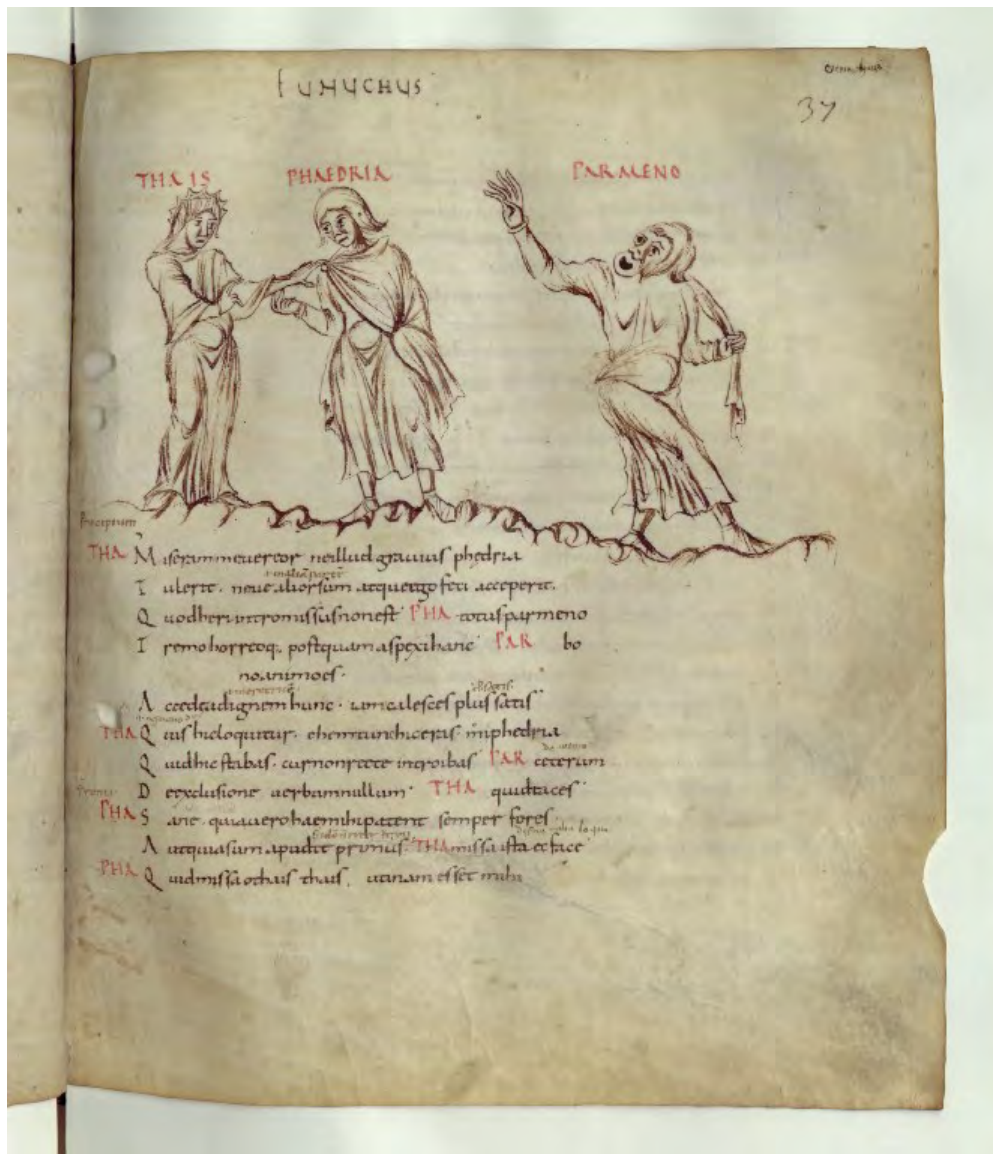 EUNUCHUS
37
THAIS PHAEDRIA PARMENO
THA Miseram me uereor ne illud grauius phedria
Tulerit · neue aliorsum atque ego feci acceperit.
Quod heri intromissus non est PHA totus parmeno
Tremo horreoq; postquam aspexi hanc PAR bo
no animo es ·
Accede ad ignem hunc · iam calesces plus satis
THA Quis hic loquitur · ehem tun hic eras mi phedria
Quid hic stabas · cur non recte introibas PAR ceterum
De exclusione uerbam nullum THA quid taces
PHA Sane · quia uero hae mihi patent semper fores
Aut quia sum apud te primus · THA missa ista ec face
PHA Quid missa o thais thais, utinam esset mihi